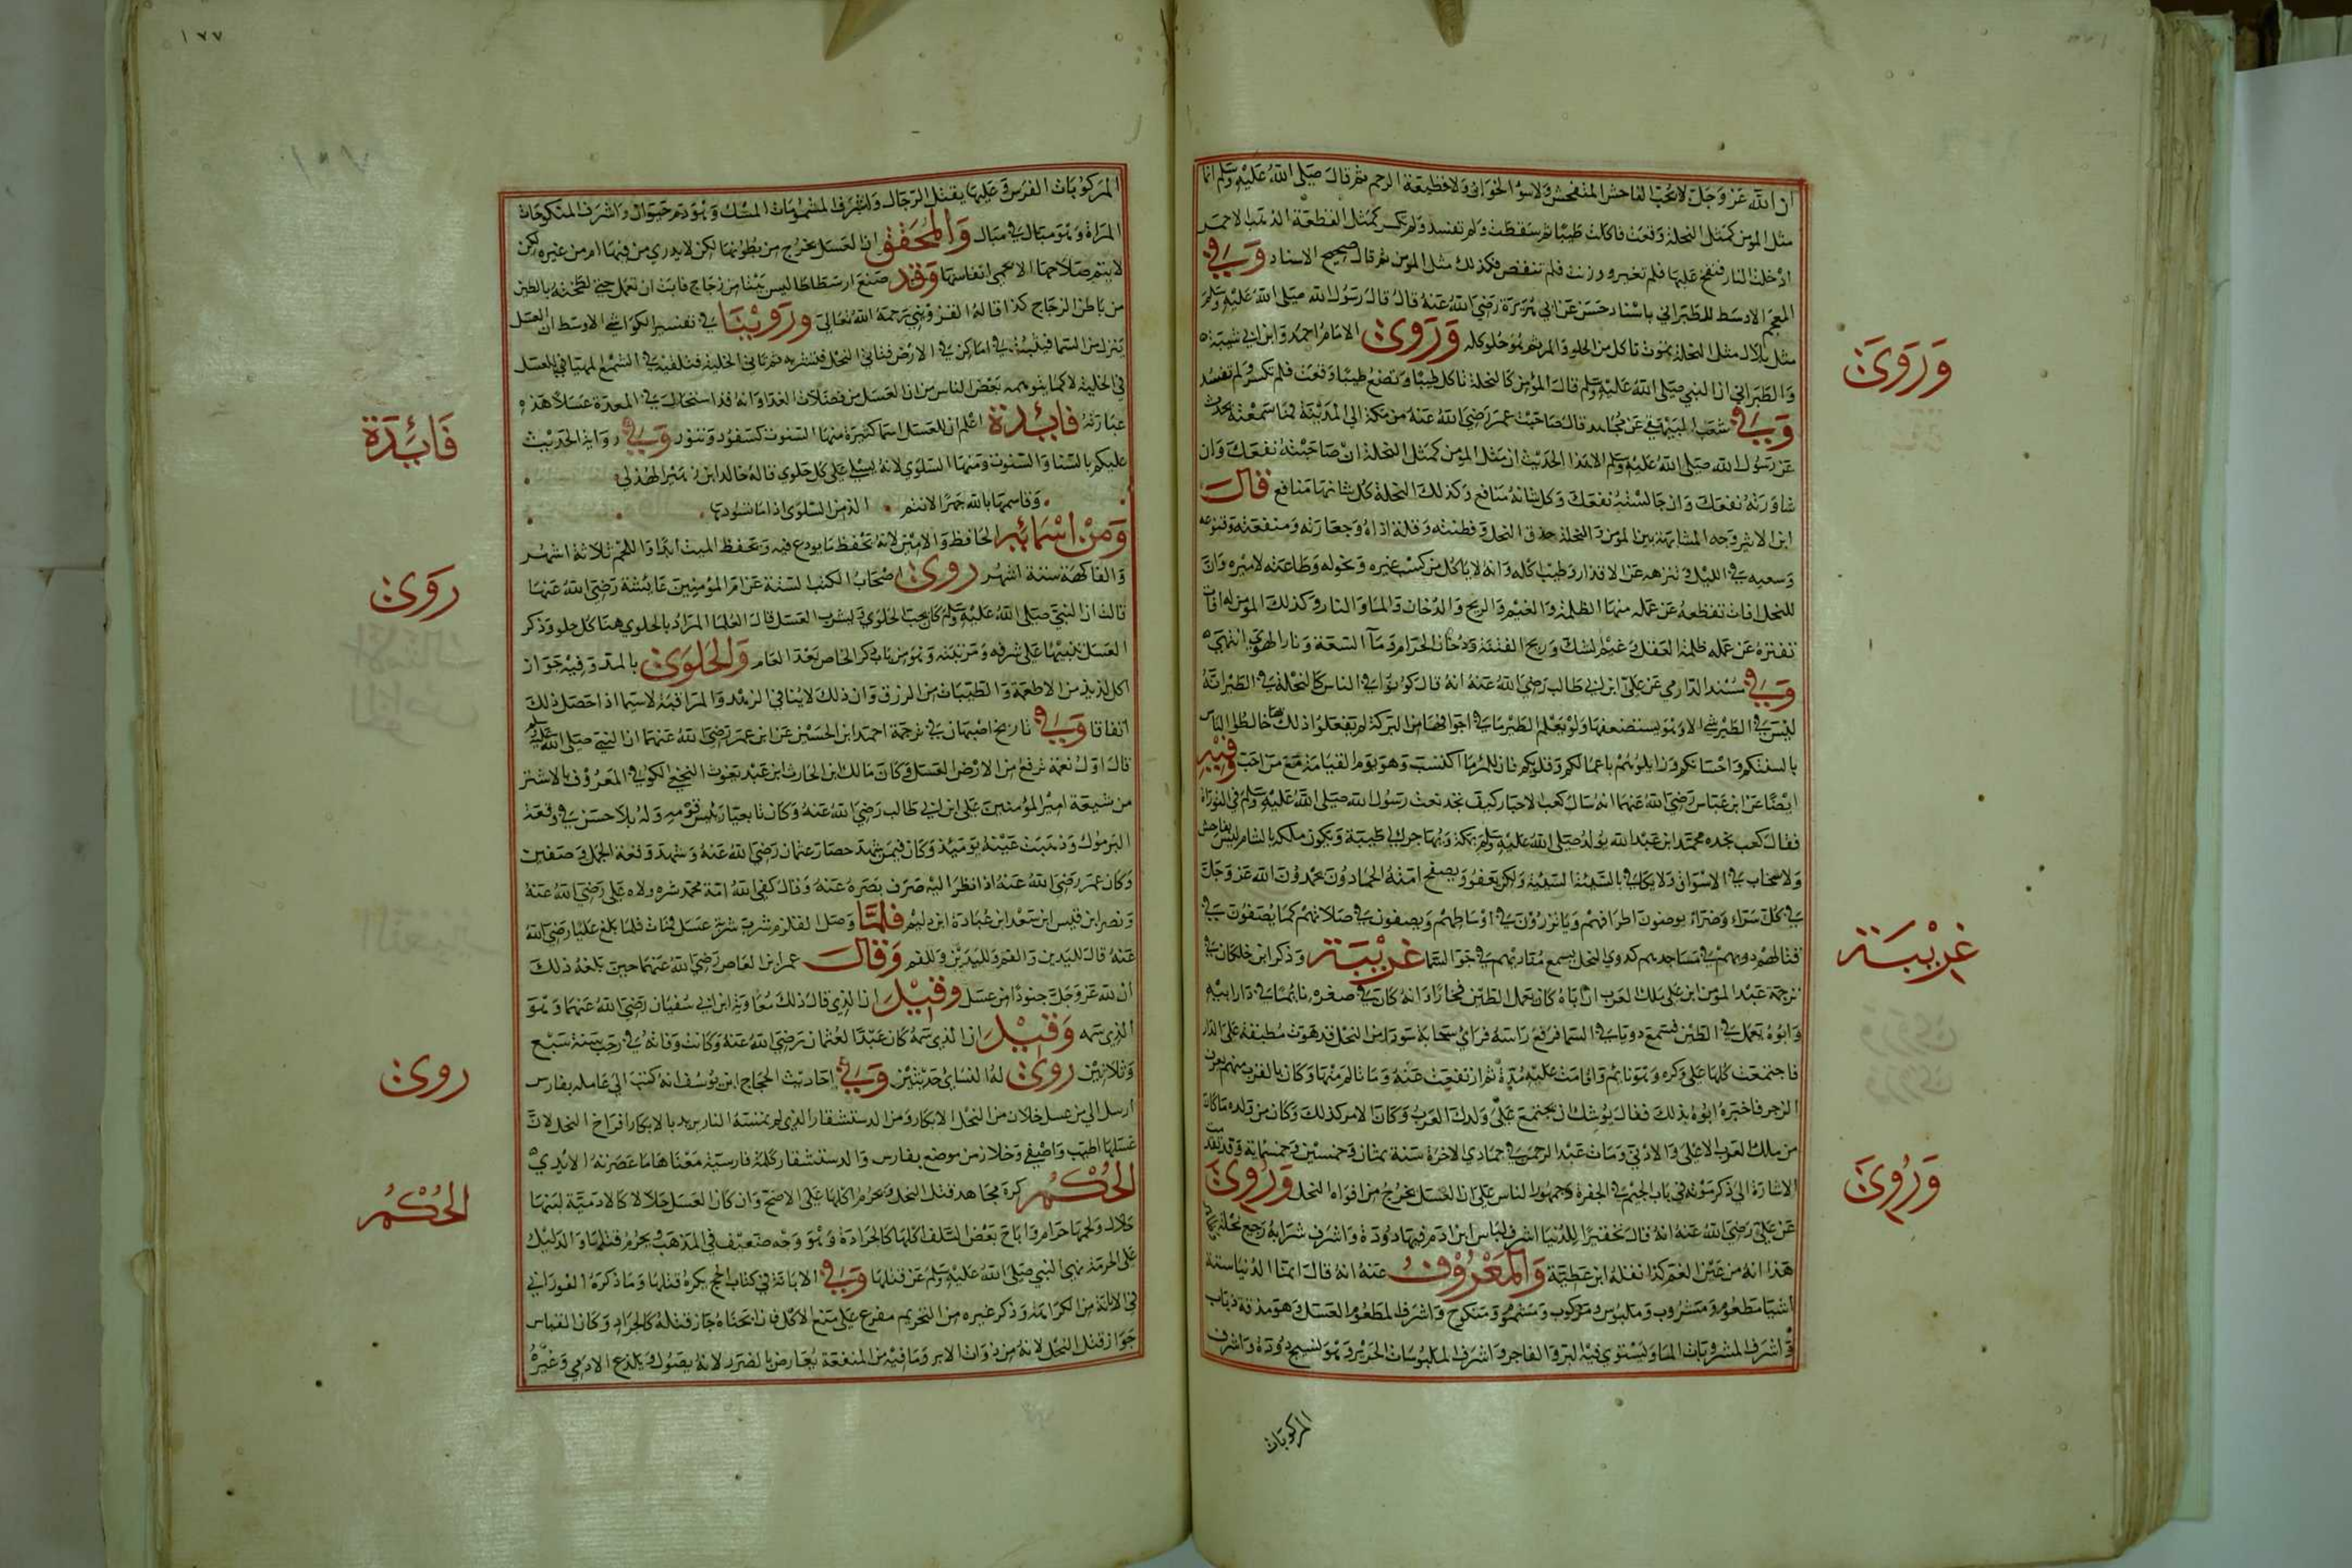 ان الله عز وجل لا يحب الفاحش المتفحش ولا سوء الجوار ولا قطيعة الرحم ثم قال صلى الله عليه وسلم انما
مثل المومن كمثل النحلة وقعت فاكلت طيبا ثم سقطت ولم تفسد ولم تكسر كمثل القطعة الذهب الاحمر
ادخلت النار فنفخ عليها فلم تتغير ووزنت فلم تنقص فكذلك مثل المومن ثم قال صحيح الاسناد وفي
المعجم الاوسط للطبراني باسناد حسن عن ابي هريرة رضي الله عنه قال قال رسول الله صلى الله عليه وسلم
مثل بلال مثل النحلة تاكل من الحلو والمر ثم هو حلو كله وروى الامام احمد وابن ابي شيبة
والطبراني ان النبي صلى الله عليه وسلم قال المؤمن كالنحلة تاكل طيبا وتضع طيبا وقعت فلم تكسر ولم تفسد
وفي شعب البيهقي عن مجاهد قال صاحبت عمر رضي الله عنه من مكة الى المدينة فما سمعته يحدث
عن رسول الله صلى الله عليه وسلم الا هذا الحديث ان مثل المومن كمثل النحلة ان صاحبته نفعك وان
شاورته نفعك وان جالسته نفعك وكل شانه منافع وكذلك النحلة كل شانها منافع قال
ابن الاثير وجه المشابهة بين المؤمن والنحلة حذق النحل وفطنته وقلة اذاه وحقارته ومنفعته وقنوعه
وسعيه في الليل وتنزهه عن الاقذار وطيب اكله وانه لا ياكل من كسب غيره ونحوله وطاعته لاميره وان
للنحل افات تقطعه عن عمله منها الظلمة والغيم والريح والدخان والماء والنار وكذلك المؤمن له افات
تفتره عن عمله ظلمة الغفلة وغيم الشك وريح الفتنة ودخان الحرام وماء السعة ونار الهوى انتهى
وفي مسند الدارمي عن علي ابن ابي طالب رضي الله عنه انه قال كونوا في الناس كالنحلة في الطير انه
ليس في الطير شي الا وهو يستضعفها ولو يعلم الطير ما في اجوافها من البركة لم تفعلوا ذلك بها خالطوا الناس
بالسنتكم واجسادكم وزايلوهم باعمالكم وقلوبكم فان للمرء ما اكتسب وهو يوم القيامة مع من احب وفيه
ايضا عن ابن عباس رضي الله عنهما انه سال كعب الاحبار كيف تجد نعت رسول الله صلى الله عليه وسلم في التوراة
فقال كعب نجده محمد ابن عبد الله يولد صلى الله عليه وسلم بمكة ويهاجر الى طيبة ويكون ملكه بالشام ليس بفاحش
ولا سخاب في الاسواق ولا يكافي بالسيئة السيئة ولكن يعفو ويصفح امته الحمادون يحمدون الله عز وجل
في كل سراء وضراء يوضون اطرافهم ويأتزرون في اوساطهم ويصفون في صلاتهم كما يصفون في
قتالهم دويهم في مساجدهم كدوي النحل يسمع مناديهم في جو السما غريبة وذكر ابن خلكان في
ترجمة عبد المؤمن ابن علي ملك الغرب ان اباه كان يعمل الطين فخارا وانه كان في صغره نايما في دار ابيه
وابوه يعمل في الطين فسمع دويا في السما فرفع راسه فراى سحابة سودا من النحل قد هوت مطبقة على الدار
فاجتمعت كلها على وكره وهو نايم واقامت عليه مدة ثم ارتفعت عنه وما تالم منها وكان بالقرب منهم يعرف
الزجر فاخبره ابوه بذلك فقال يوشك ان يجتمع على ولدك الغرب وكان الامر كذلك وكان من ولده ما كان
من ملك الغرب الاعلى والادنى ومات عبد الرحمن في جمادي الاخرة سنة ثمان وخمسين وخمسماية وقد تقدمت
الاشارة الى ذكر موته في باب الجيم في الجفرة وجمهور الناس على ان العسل يخرج من افواه النحل وروى
عن علي رضي الله عنه انه قال تحقيرا للدنيا اشرف لباس ابن ادم فيها دودة واشرف شرابه رجيع نحلة
هذا انه من غير الفم كذا نقله ابن عطية والمعروف عنه انه قال انما الدنيا ستة
اشيا مطعوم ومشروب وملبوس ومركوب ومشموم ومنكوح واشرف المطعوم العسل وهو مذقة ذباب
واشرف المشروبات الماء ويستوي فيه البر والفاجر واشرف الملبوسات الحرير وهو نسيج دودة واشرف
المركوبات
وروى
غريبة
وروى
١٧٧
المركوبات الفرس وعليها يقتل الرجال واشرف المشمومات المسك وهو دم حيوان واشرف المنكوحات
المراة وهو مبال في مبال والمحقق ان العسل يخرج من بطونها لكن لا يدري من فيها ام من غيره ولكن
لا يتم صلاحها الا بحمى انفاسها وقد صنع ارسطاطاليس بيتا من زجاج فابت ان تعمل حتى لطخته بالطين
من باطن الزجاج كذا قاله الغزنوي رحمه الله تعالى وروينا في تفسير الكواشي الاوسط ان العسل
ينزل من السما فيثبت في اماكن في الارض فتاتي النحل فتشربه ثم تاتي الخلية فتلقيه في الشمع المهيا للعسل
في الخلية لا كما يتوهمه بعض الناس من ان العسل من فضلات الغذا وانه قد استحال في المعدة عسلا هذه
عبارته فائدة اعلم ان للعسل اسما كثيرة منها السنوت كسفود وتنور وفي رواية الحديث
عليكم بالسنا والسنوت ومنها السلوى لانه يسلي على كل حلوى قاله خالد ابن زهير الهذلي
وقاسمها بالله جهرا لانتم الذ من السلوى اذا ما نشورها
ومن اسمائه الحافظ والامين لانه يحفظ ما يودع فيه ويحفظ الميت ابدا واللحم ثلاثة اشهر
والفاكهة ستة اشهر روى اصحاب الكتب الستة عن ام المؤمنين عائشة رضي الله عنها
قالت ان النبي صلى الله عليه وسلم كان يحب الحلوى ويشرب العسل قال العلما المراد بالحلوى هنا كل حلو وذكر
العسل تنبيها على شرفه ومزيته وهو من باب ذكر الخاص بعد العام والحلوى بالمد وفيه جواز
اكل لذيذ من الاطعمة والطيبات من الرزق وان ذلك لا ينافي الزهد والمراقبة لا سيما اذا حصل ذلك
اتفاقا وفي تاريخ اصبهان في ترجمة احمد ابن الحسين عن ابن عمر رضي الله عنهما ان النبي صلى الله عليه وسلم
قال اول نعمة ترفع من الارض العسل وكان مالك ابن الحارث ابن عبد يغوث النخعي الكوفي المعروف بالاشتر
من شيعة امير المؤمنين علي ابن ابي طالب رضي الله عنه وكان تابعيا رئيس قومه وله بلا حسن في وقعة
اليرموك وذهبت عينه يومئذ وكان فيمن شهد حصار عثمان رضي الله عنه وشهد وقعة الجمل وصفين
وكان عمر رضي الله عنه اذا نظر اليه صرف بصره عنه وقال كفى الله امة محمد شره ولاه علي رضي الله عنه
مصر ابن قيس ابن سعد ابن عبادة ابن دليم فلما وصل القلزم شرب شربة عسل فمات فلما بلغ عليا رضي الله
عنه قال لليدين والفم ولليدين وللفم وقال عمر ابن العاص رضي الله عنهما حين بلغه ذلك
ان لله عز وجل جنودا من عسل وقيل ان الذي قال ذلك معاوية ابن ابي سفيان رضي الله عنهما وهو
الذي سمه وقيل ان الذي سمه كان عبدا لعثمان رضي الله عنه وكانت وفاته في رجب سنة سبع
وثلاثين روى له النسائ حديثين وفي احاديث الحجاج ابن يوسف انه كتب الى عامله بفارس
ارسل الي من عسل خلار من النحل الابكار ومن الدستشفار الذي لم تمسه النار يريد بالابكار افراخ النحل لان
عسلها اطيب واصفى وخلار من موضع بفارس والدستشفار كلمة فارسية معناها ما عصرته الايدي
الحكم كره مجاهد قتل النحل ويحرم اكلها على الاصح وان كان العسل حلالا كالادمية لبنها
حلال ولحمها حرام واباح بعض السلف اكلها كالجرادة وهو وجه ضعيف في المذهب ويحرم قتلها والدليل
على الحرمة نهى النبي صلى الله عليه وسلم عن قتلها وفي الابانة في كتاب الحج يكره قتلها وما ذكره الفوراني
في الابانة من الكراهة وذكر غيره من التحريم مفرع على منع الاكل فان ابحناه جاز قتله كالجراد وكان القياس
جواز قتل النحل لانه من ذوات الابر وما فيه من المنفعة يعارض بالضرر لانه يصول ويلدغ الادمي وغيره
فائدة
روى
روى
الحكم